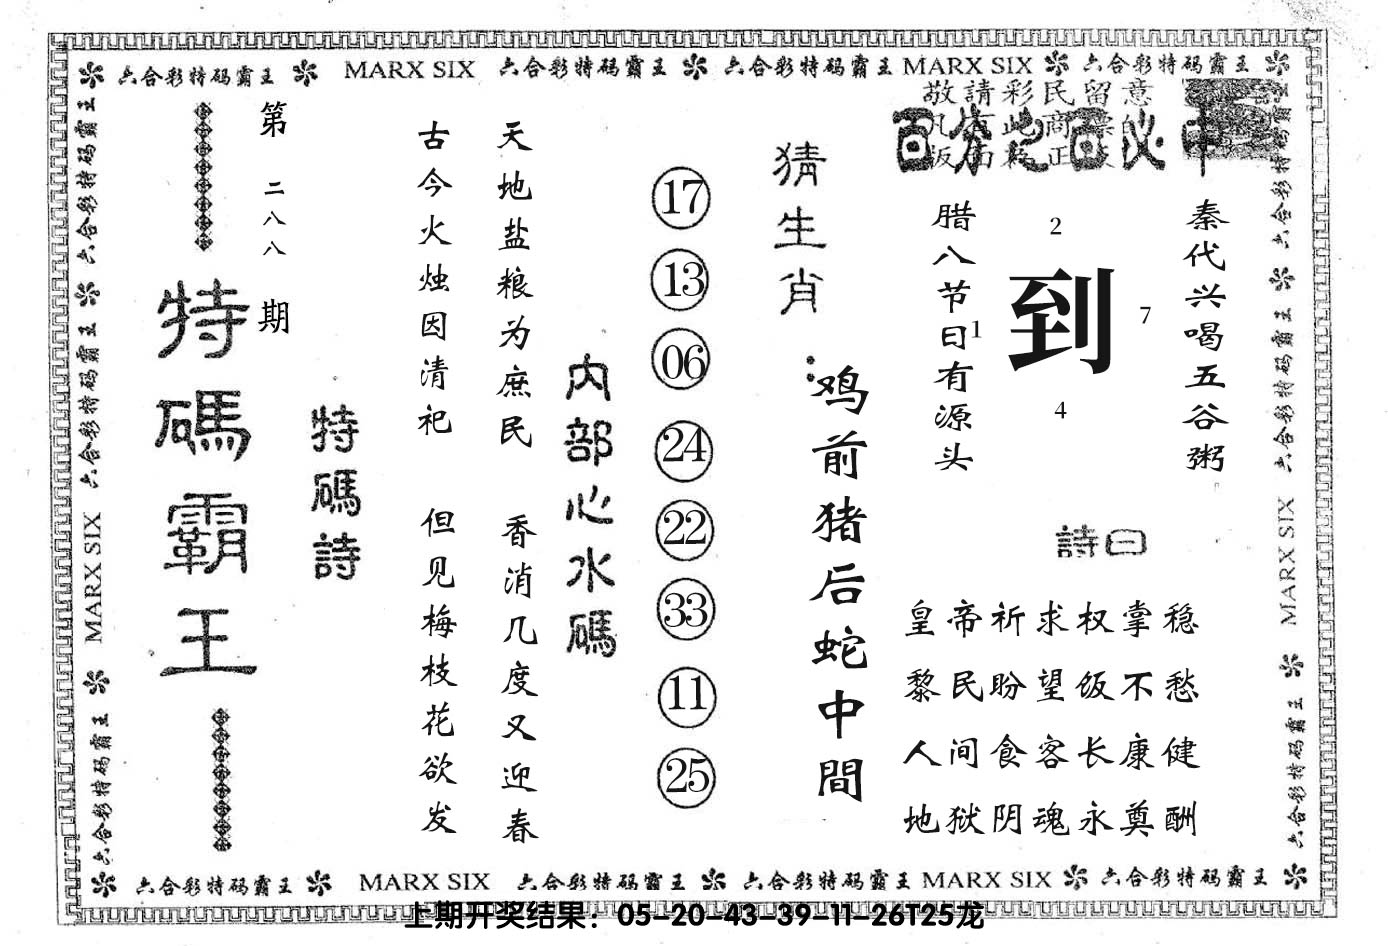 六合彩特码霸王 MARX SIX 六合彩特码霸王 六合彩特码霸王 MARX SIX 六合彩特码霸王
敬請彩民留意
百分之百必中
秦代兴喝五谷粥
腊八节日有源头
2
1
到
7
4
詩曰
皇帝祈求权掌稳
黎民盼望饭不愁
人间食客长康健
地狱阴魂永奠酬
猜生肖:
鸡前猪后蛇中間
17
13
06
24
22
33
11
25
内部心水碼
天地盐粮为庶民 香消几度又迎春
古今火烛因清祀 但见梅枝花欲发
特碼詩
第二八八期
特碼霸王
六合彩特码霸王 六合彩特码霸王 MARX SIX 六合彩特码霸王
六合彩特码霸王 六合彩特码霸王 MARX SIX 六合彩特码霸王
六合彩特码霸王 MARX SIX 六合彩特码霸王 六合彩特码霸王 MARX SIX 六合彩特码霸王
上期开奖结果：05-20-43-39-11-26T25龙